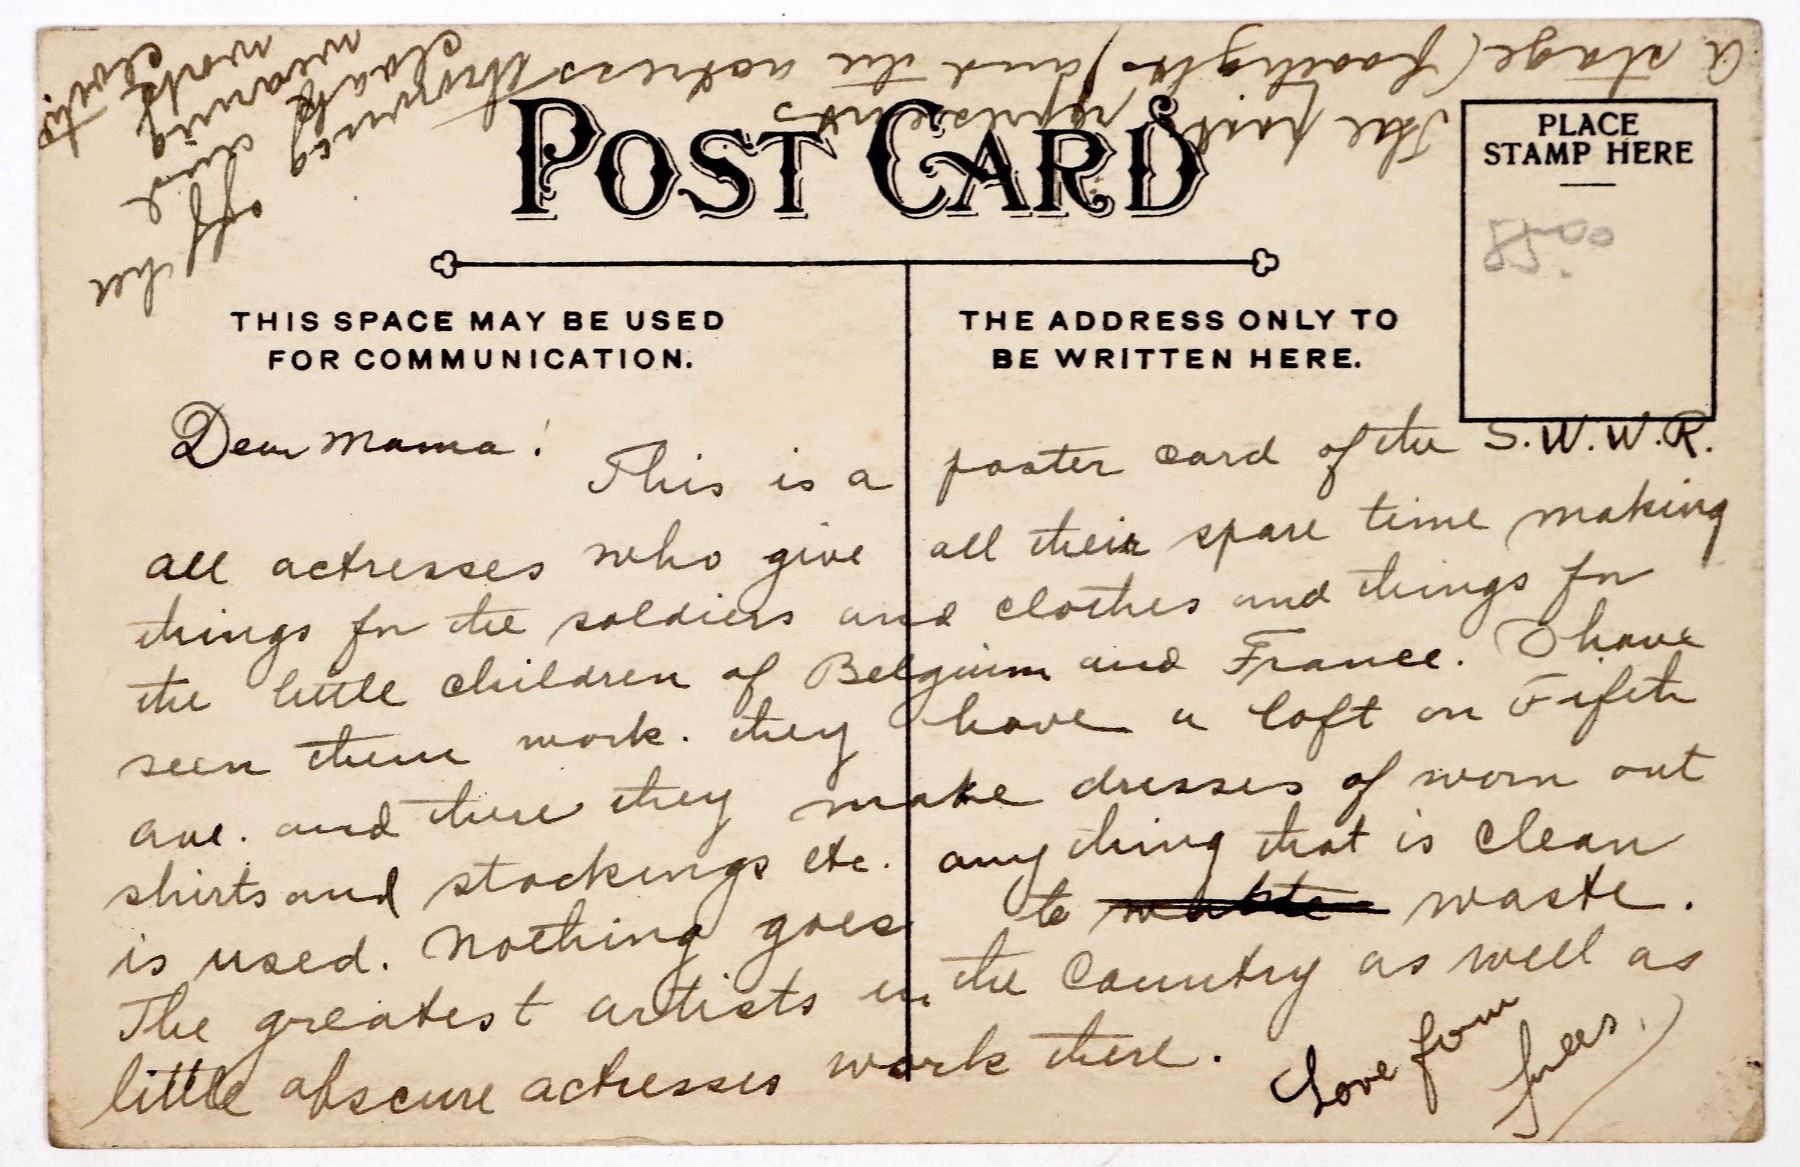 POST CARD
PLACE
STAMP HERE
THIS SPACE MAY BE USED
FOR COMMUNICATION.
THE ADDRESS ONLY TO
BE WRITTEN HERE.
Dear Mama!
This is a poster card of the S.W.W.R.
all actresses who give all their spare time making
things for the soldiers and clothes and things for
the little children of Belguim and France. I have
seen them work. they have a loft on Fifth
ave. and there they make dresses of worn out
shirts and stockings etc. any thing that is clean
is used. Nothing goes to waste waste.
The greatest artists in the country as well as
little obscure actresses work there.
Love from
The post represents
a stage (footlights) and the actress throwing
off her cloak and wearing work